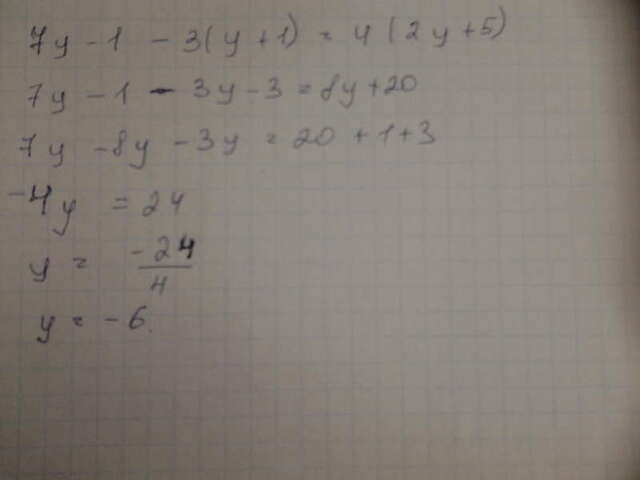 7y - 1 - 3(y + 1) = 4 (2y + 5)
7y - 1 - 3y - 3 = 8y + 20
7y - 8y - 3y = 20 + 1 + 3
-4y = 24
y = -24/4
y = -6.